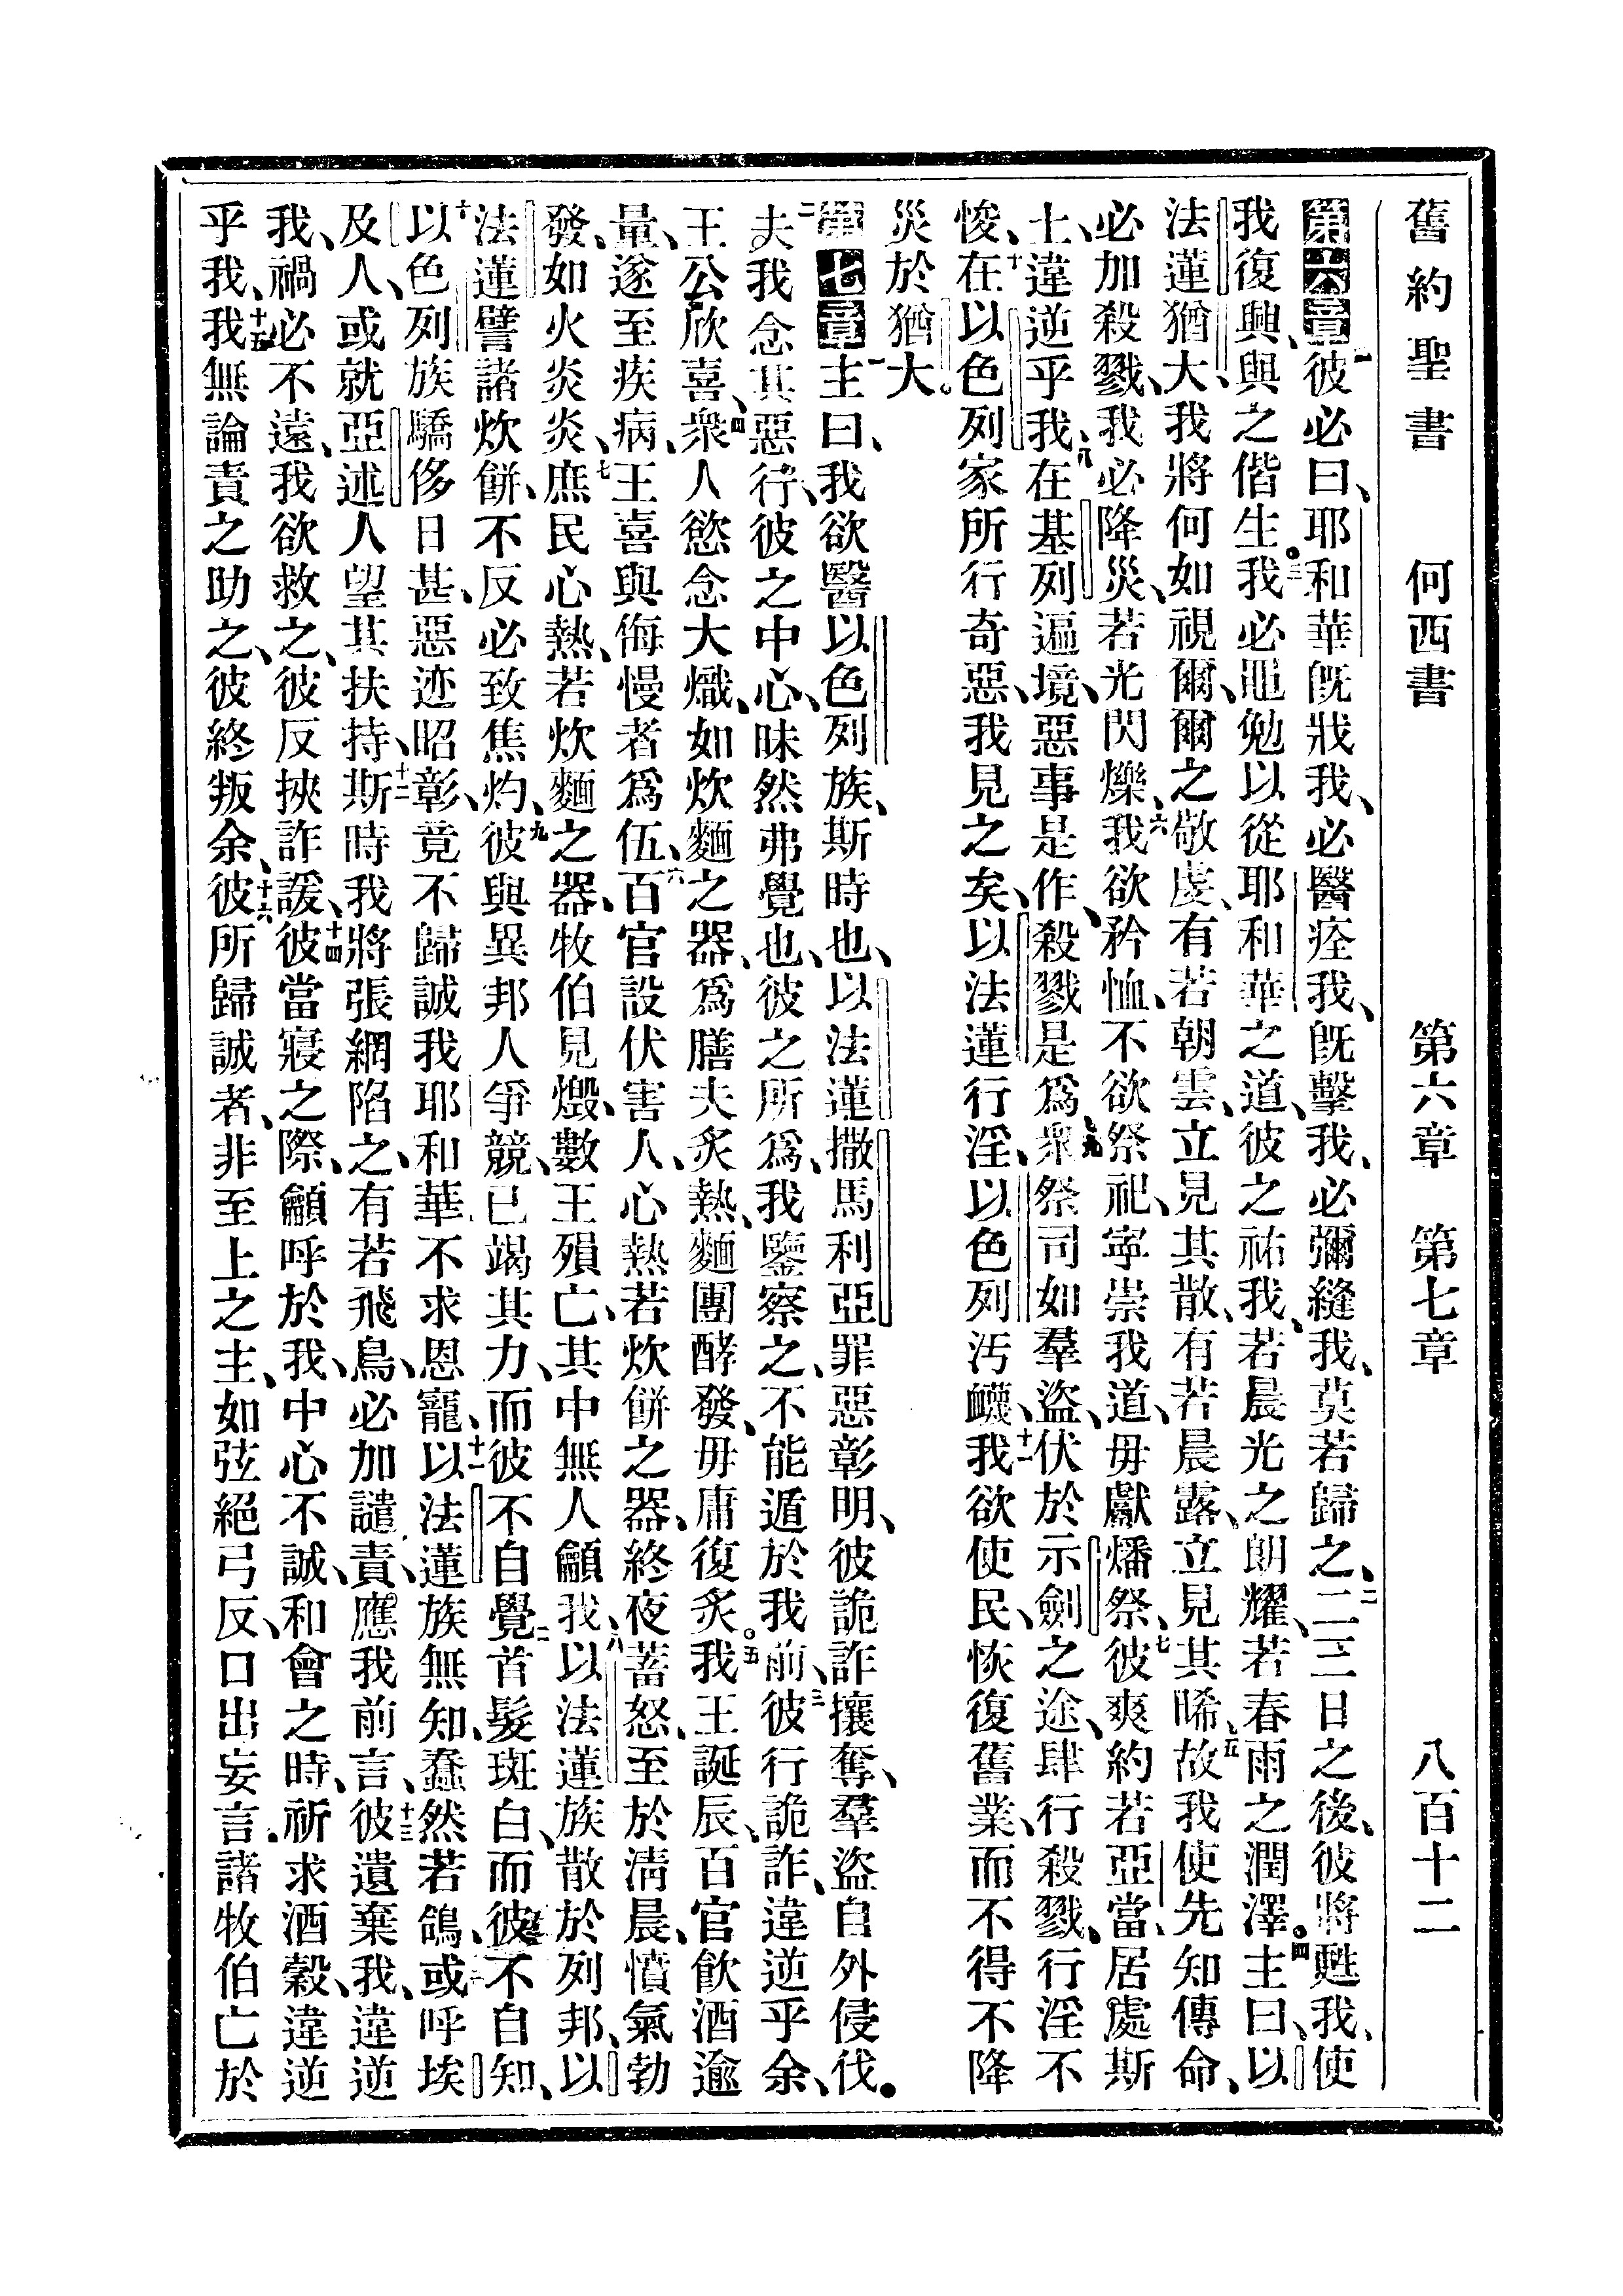 舊約聖書 何西書 第六章 第七章 八百十二
第六章一彼必曰、耶和華旣戕我、必醫痊我、旣擊我、必彌縫我、莫若歸之、二二三日之後、彼將甦我、使
我復興、與之偕生。三我必黽勉以從耶和華之道、彼之祐我、若晨光之朗耀、若春雨之潤澤。四主曰、以
法蓮猶大、我將何如視爾、爾之敬虔、有若朝雲、立見其散、有若晨露、立見其晞、五故我使先知傳命、
必加殺戮、我必降災、若光閃爍、六我欲矜恤、不欲祭祀、寧崇我道、毋獻燔祭、七彼爽約若亞當、居處斯
土、違逆乎我、八在基列遍境、惡事是作、殺戮是爲、九衆祭司如羣盜、伏於示劍之途、肆行殺戮、行淫不
悛、十在以色列家所行奇惡、我見之矣、以法蓮行淫、以色列汚衊、十一我欲使民、恢復舊業、而不得不降
災於猶大。
第七章一主曰、我欲醫以色列族、斯時也、以法蓮撒馬利亞罪惡彰明、彼詭詐攘奪、羣盜自外侵伐。
二夫我念其惡行、彼之中心、昧然弗覺也、彼之所爲、我鑒察之、不能遁於我前、三彼行詭詐、違逆乎余、
王公欣喜、四衆人慾念大熾、如炊麵之器、爲膳夫炙熱、麵團酵發、毋庸復炙。五我王誕辰、百官飮酒逾
量、遂至疾病、王喜與侮慢者爲伍、六百官設伏害人、心熱若炊餅之器、終夜蓄怒、至於淸晨、憤氣勃
發、如火炎炎、七庶民心熱、若炊麵之器、牧伯見燬、數王殞亡、其中無人籲我、八以法蓮族散於列邦、以
法蓮譬諸炊餅、不反必致焦灼、九彼與異邦人爭競、已竭其力、而彼不自覺、首髮斑白、而彼不自知、
十以色列族驕侈日甚、惡迹昭彰、竟不歸誠我耶和華、不求恩寵、十一以法蓮族無知、蠢然若鴿、或呼埃
及人、或就亞述人、望其扶持、十二斯時我將張網陷之、有若飛鳥、必加譴責、應我前言、十三彼遺棄我、違逆
我、禍必不遠、我欲救之、彼反挾詐諼、十四彼當寢之際、籲呼於我、中心不誠、和會之時、祈求酒穀、違逆
乎我、十五我無論責之助之、彼終叛余、十六彼所歸誠者、非至上之主、如弦絕弓反、口出妄言、諸牧伯亡於